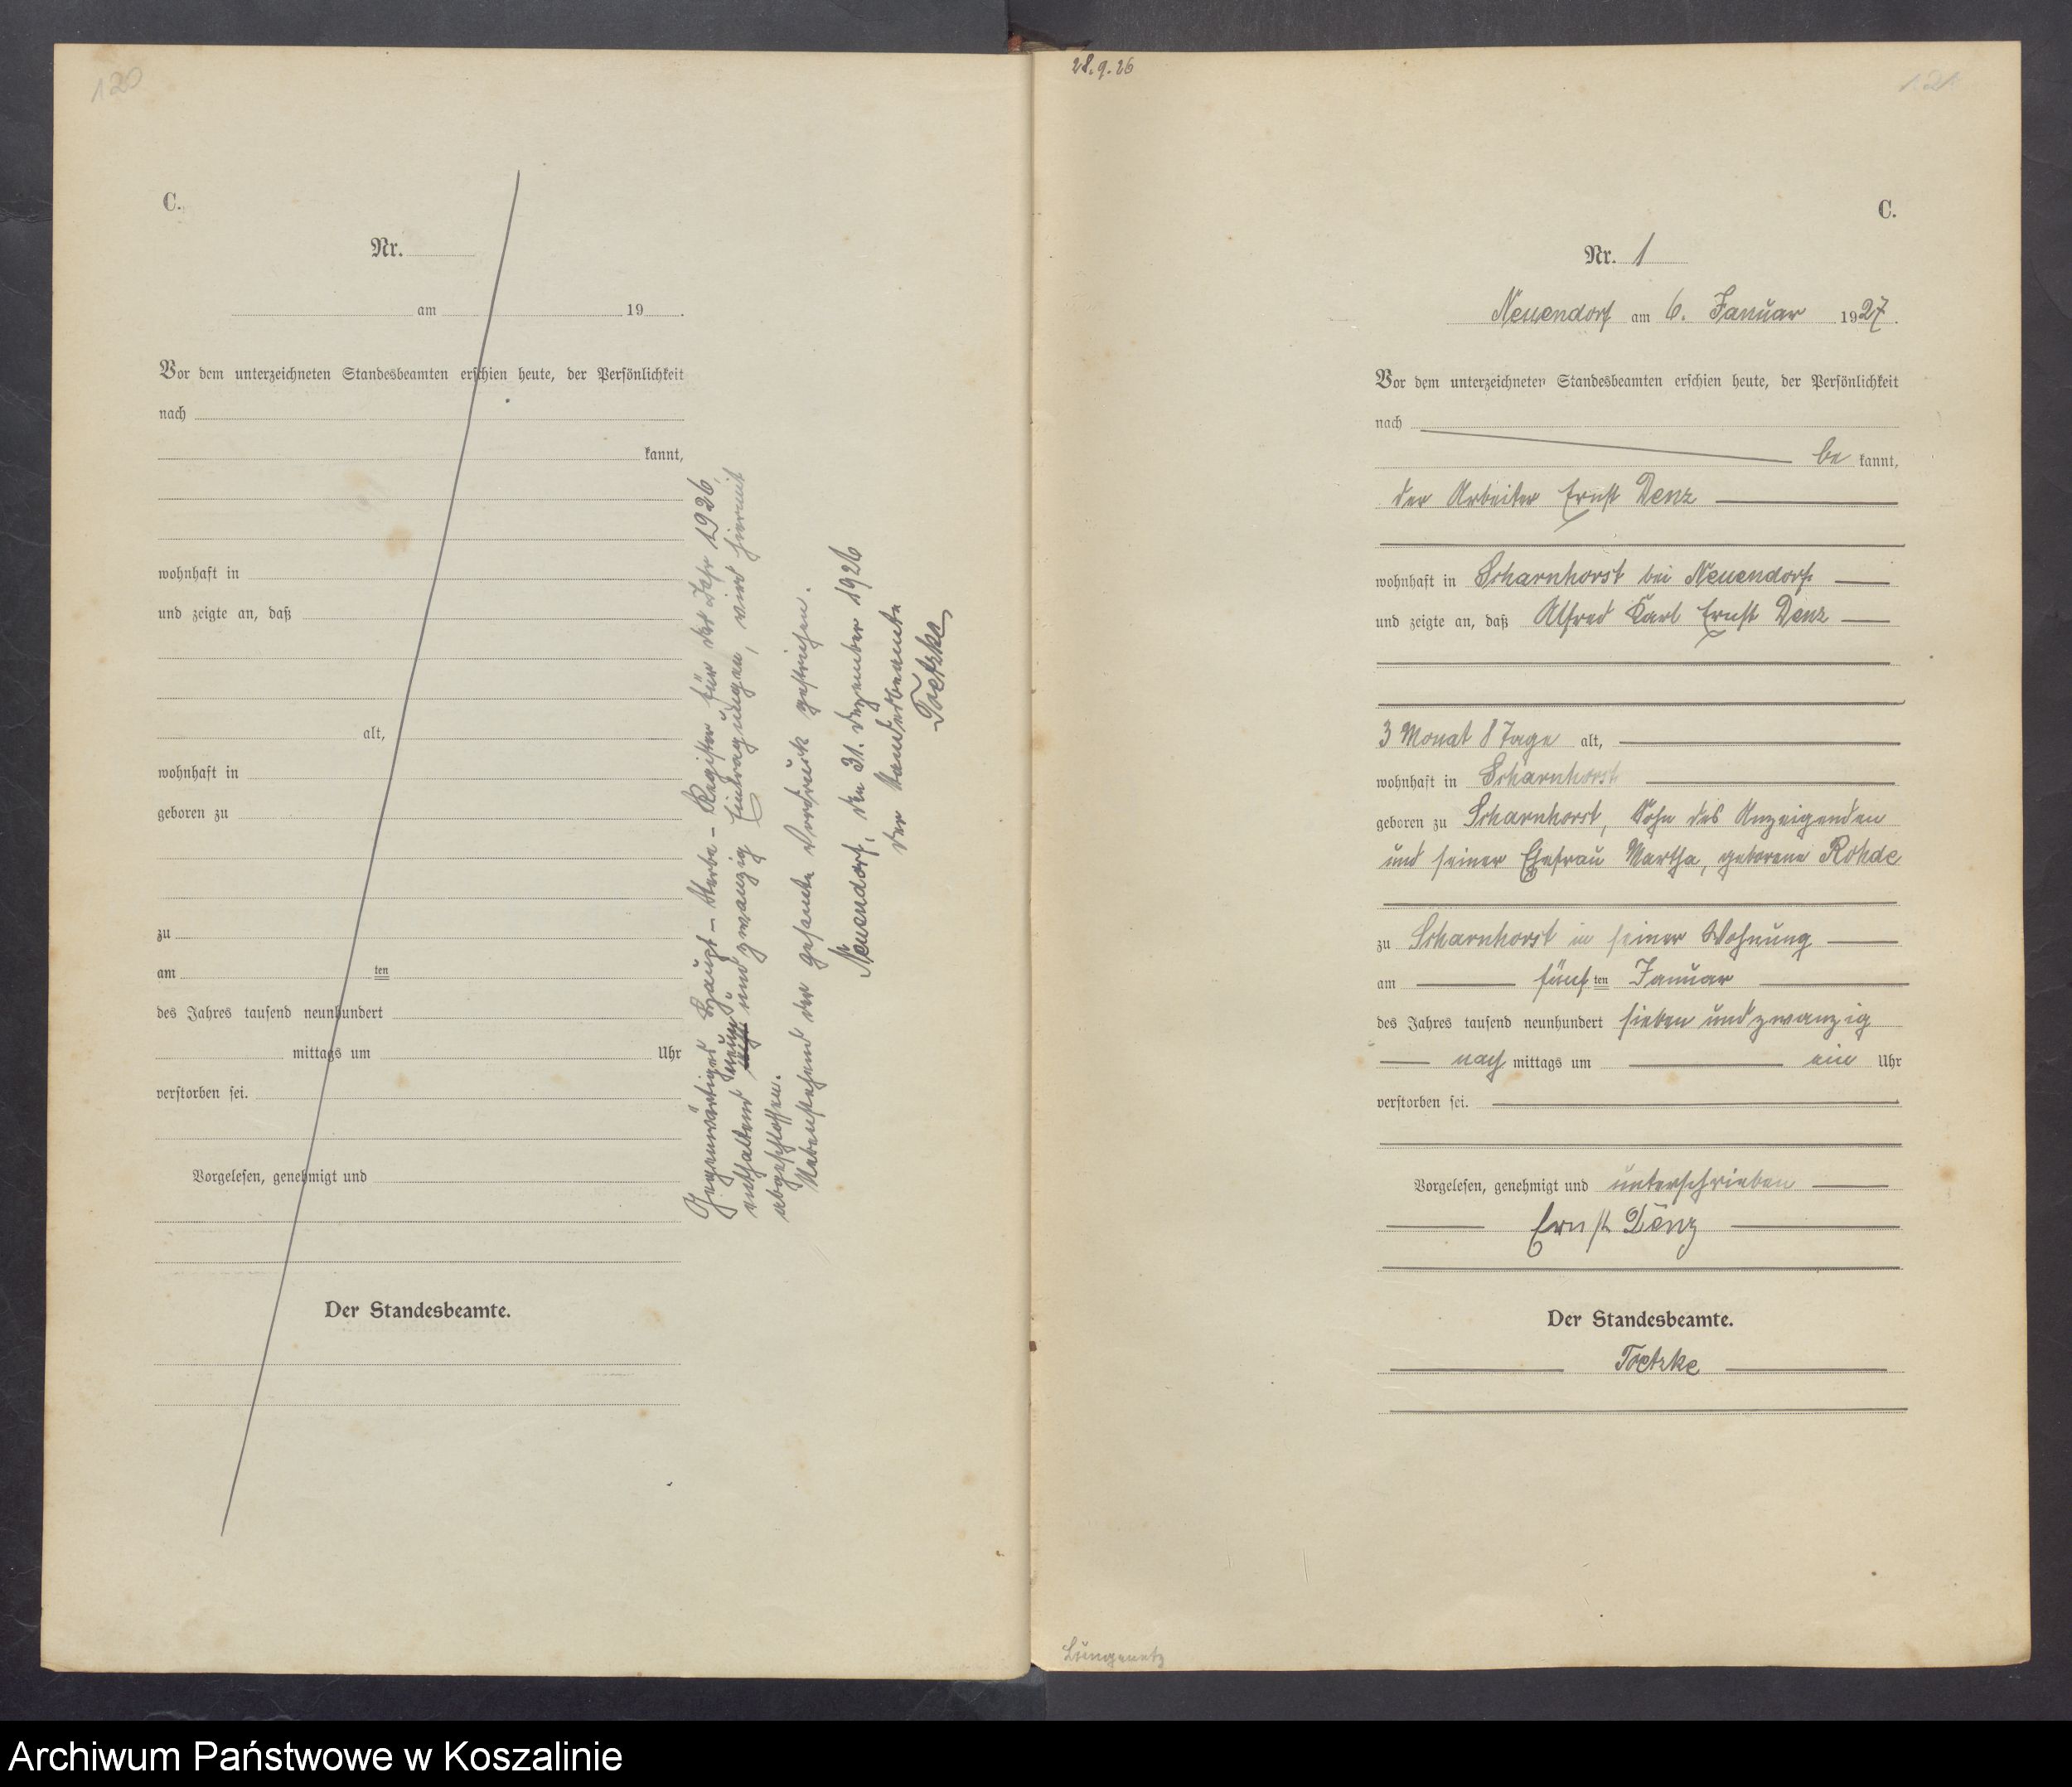 120
C.
Nr.
am 19 .
Vor dem unterzeichneten Standesbeamten erschien heute, der Persönlichkeit
nach
kannt,
wohnhaft in
und zeigte an, daß
alt,
wohnhaft in
geboren zu
zu
am ten
des Jahres tausend neunhundert
mittags um Uhr
verstorben sei.
Vorgelesen, genehmigt und
Der Standesbeamte.
Gegenwärtiges Haupt-Sterbe-Register für das Jahr 1926,
enthaltend neun und zwanzig Eintragungen, wird hiermit
abgeschlossen.
Nebenstehend der gesamte Vordruck gestrichen.
Neuendorf, den 31. Dezember 1926
Der Standesbeamte
Toetzke
28.9.26
121
C.
Nr. 1
Neuendorf am 6. Januar 1927.
Vor dem unterzeichneten Standesbeamten erschien heute, der Persönlichkeit
nach
be kannt,
der Arbeiter Ernst Denz
wohnhaft in Scharnhorst bei Neuendorf
und zeigte an, daß Alfred Karl Ernst Denz
3 Monat 8 Tage alt,
wohnhaft in Scharnhorst
geboren zu Scharnhorst, Sohn des Anzeigenden
und seiner Ehefrau Martha, geborene Rohde
zu Scharnhorst in seiner Wohnung
am fünf ten Januar
des Jahres tausend neunhundert sieben und zwanzig
nach mittags um ein Uhr
verstorben sei.
Vorgelesen, genehmigt und unterschrieben
Ernst Denz
Der Standesbeamte.
Toetzke
Archiwum Państwowe w Koszalinie